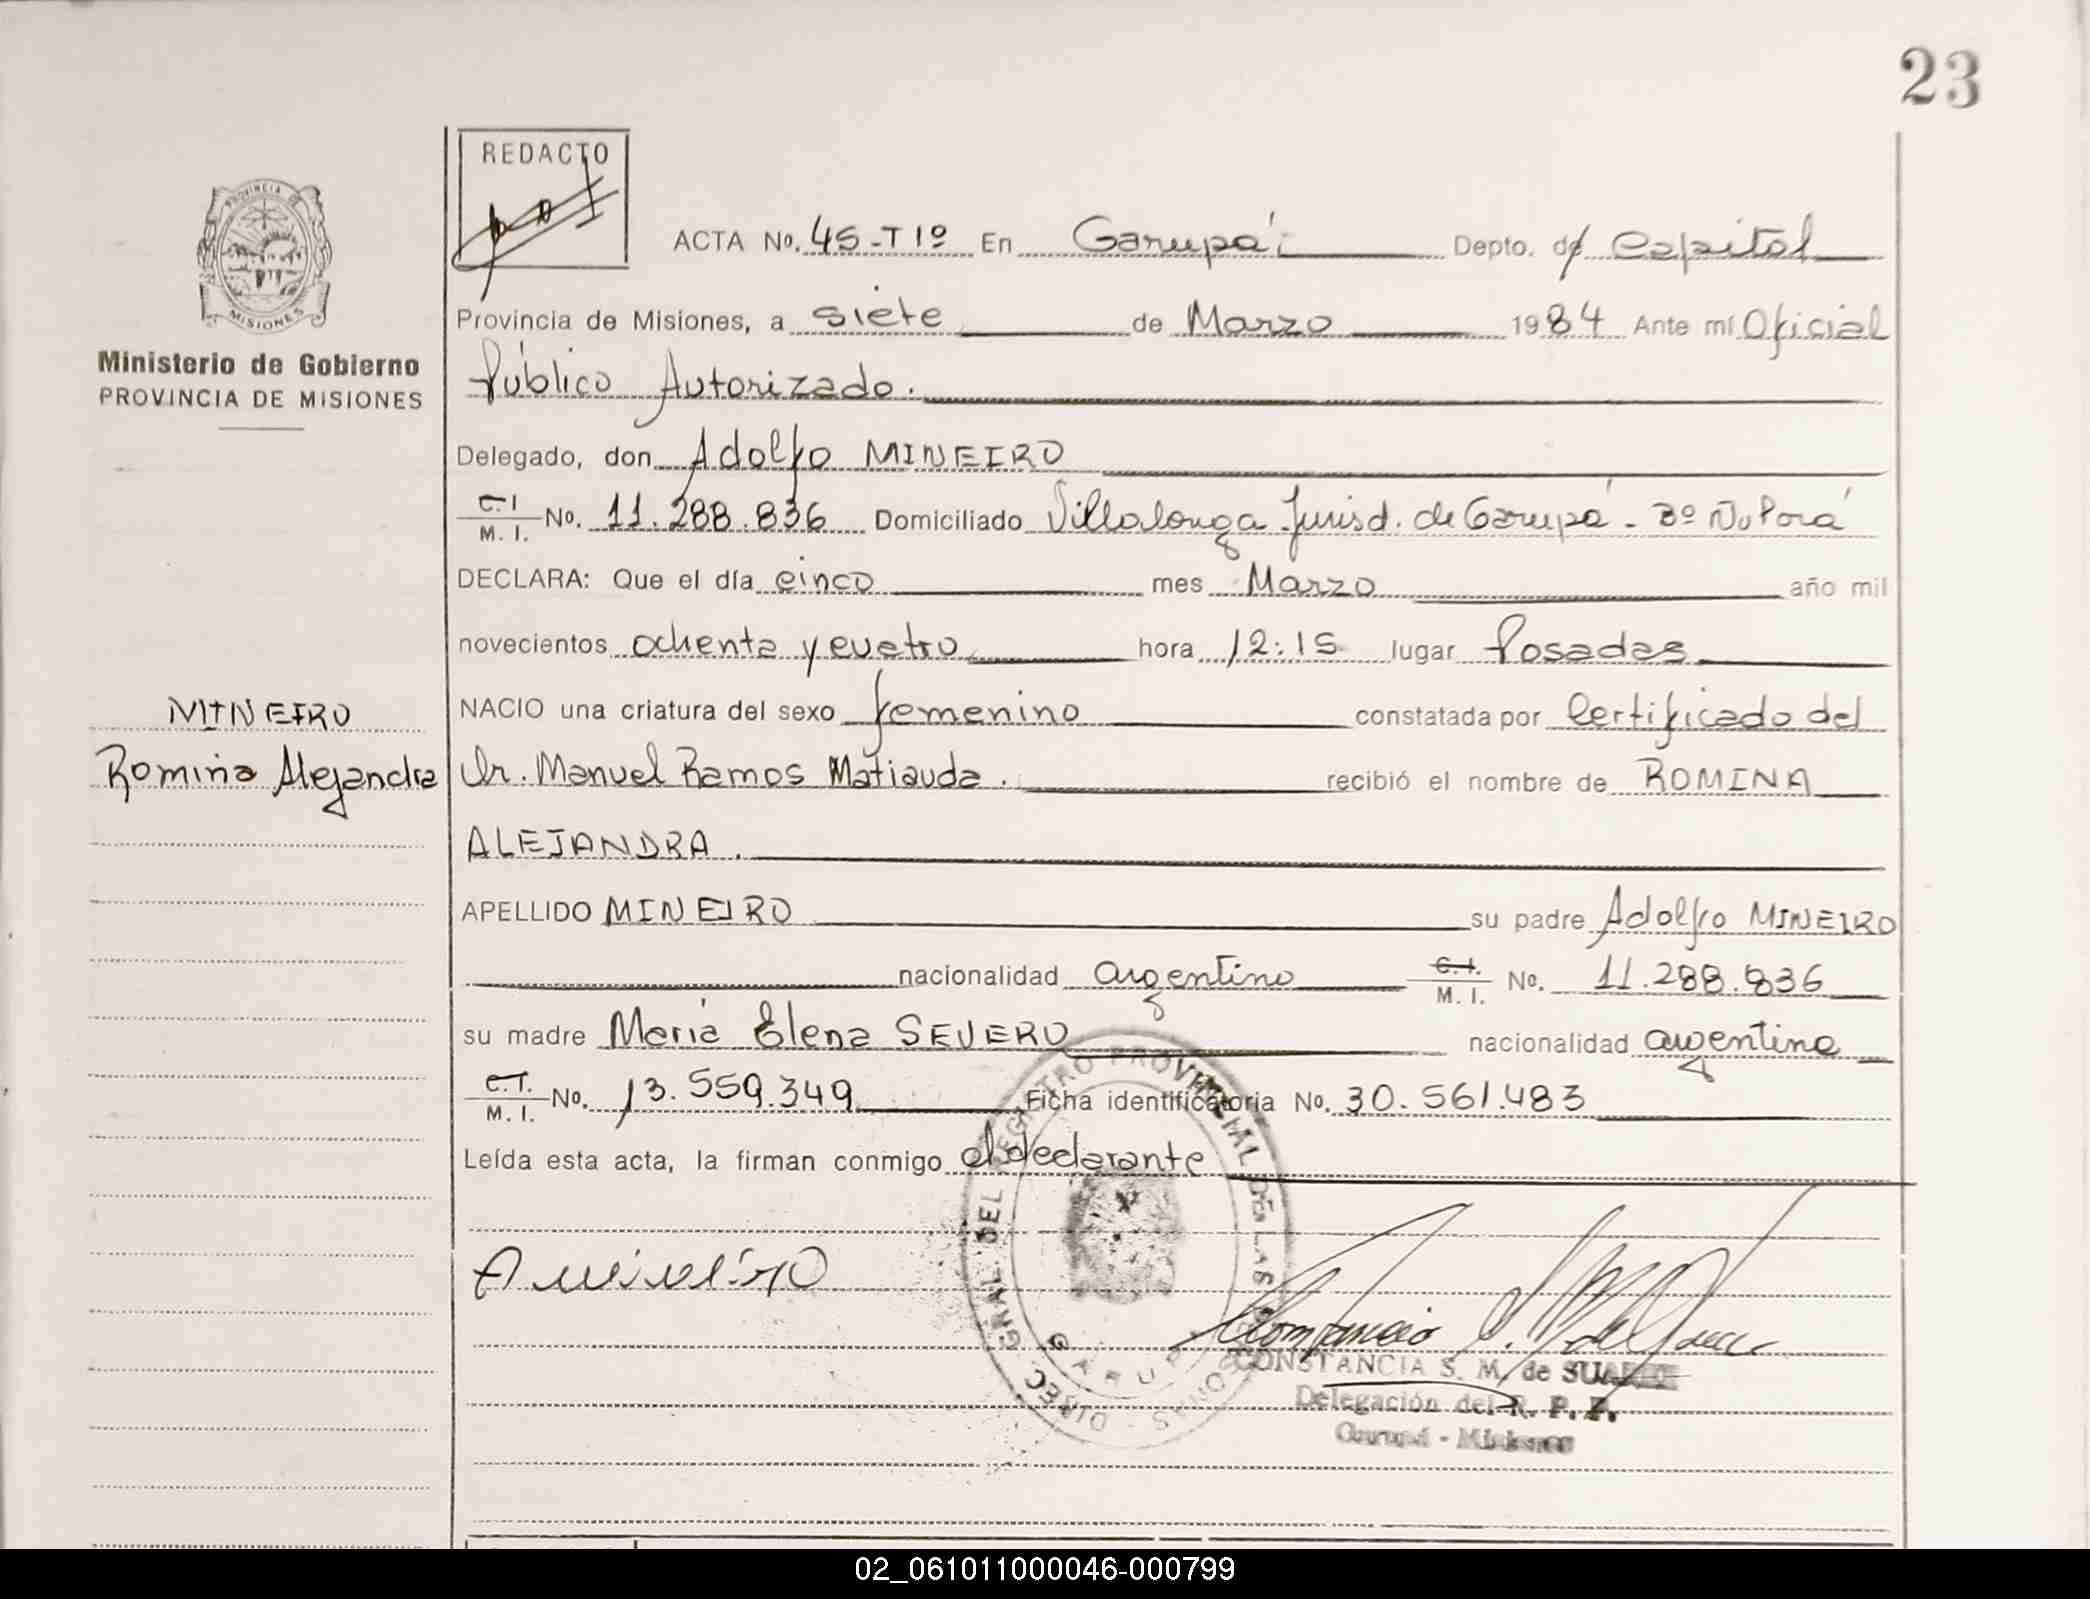 23
REDACTO
ACTA No. 45-T1º En Garupá Depto. de Capital
PROVINCIA DE
MISIONES
Provincia de Misiones, a siete de Marzo 1984 Ante mí Oficial
Ministerio de Gobierno
PROVINCIA DE MISIONES
Público Autorizado.
Delegado, don Adolfo MINEIRO
C.I
M. I. No. 11.288.836 Domiciliado Villalonga Jurisd. de Garupá - Bº Ñu Porá
DECLARA: Que el día cinco mes Marzo año mil
novecientos ochenta y cuatro hora 12:15 lugar Posadas
MINEIRO
NACIO una criatura del sexo femenino constatada por Certificado del
Romina Alejandra
Dr. Manuel Ramos Matiauda. recibió el nombre de ROMINA
ALEJANDRA.
APELLIDO MINEIRO su padre Adolfo MINEIRO
nacionalidad argentino C.I. M. I. No. 11.288.836
su madre María Elena SEVERO nacionalidad argentina
C.I. M. I. No. 13.559.349 Ficha identificatoria No. 30.561.483
Leída esta acta, la firman conmigo el declarante
DIREC. GRAL. DEL REGISTRO PROVINCIAL DE LAS PERSONAS
GARUPA
A Mineiro
CONSTANCIA S. M. de SUAREZ
Delegación del R. P. P.
Garupá - Misiones
02_061011000046-000799